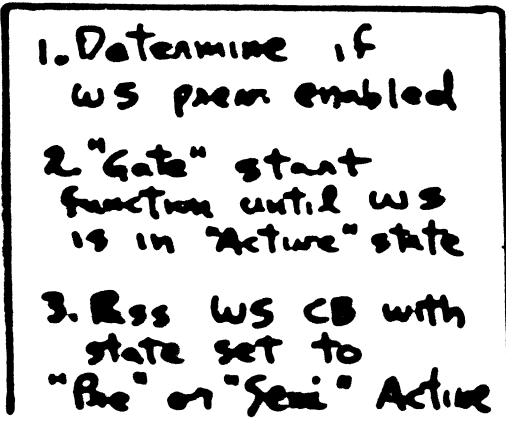 1. Determine if
WS prem enabled
2. "Gate" start
function until WS
is in "Active" state
3. Rss WS CB with
state set to
"Pre" or "Semi" Active